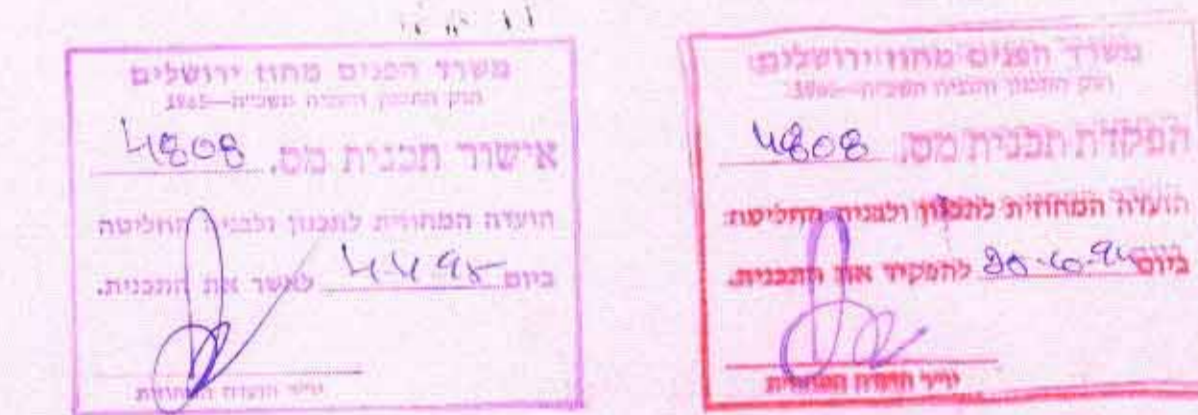 משרד הפנים מחוז ירושלים
חוק התכנון והבניה תשכ"ה—1965
הפקדת תכנית מס. 4808
הועדה המחוזית לתכנון ולבניה החליטה
ביום 20.6.94 להפקיד את התכנית.
יו״ר הועדה המחוזית
משרד הפנים מחוז ירושלים
חוק התכנון והבניה תשכ"ה—1965
אישור תכנית מס. 4808
הועדה המחוזית לתכנון ולבניה החליטה
ביום 4.4.95 לאשר את התכנית.
יו״ר הועדה המחוזית